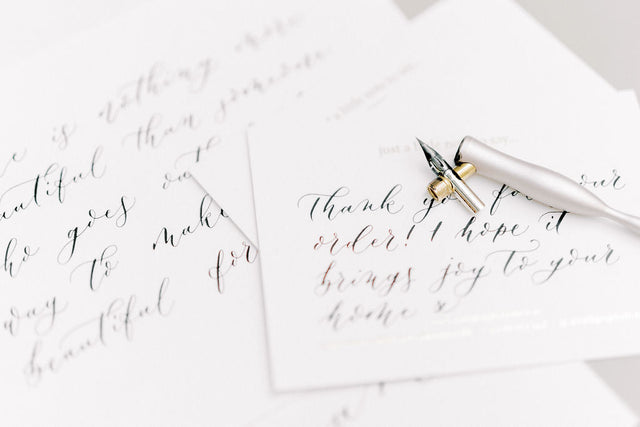 is nothing more
beautiful than someone
who goes out
way to make
beautiful for
a little note to say...
just a little note to say...
Thank you for your
order! I hope it
brings joy to your
home x